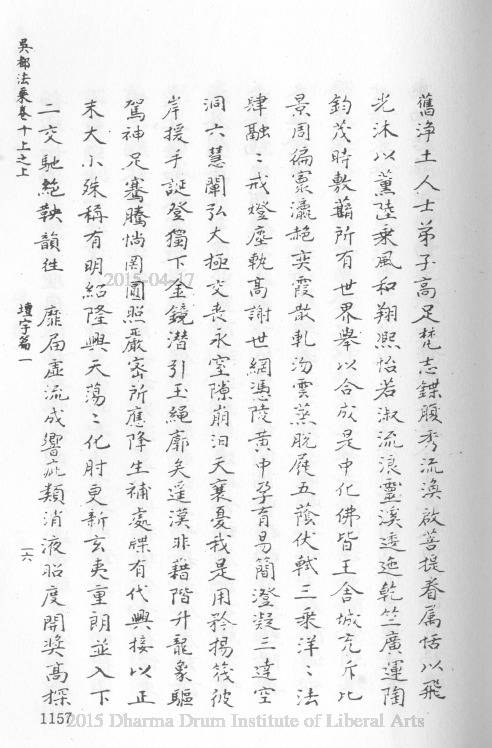 舊淨土人士弟子高足梵志鍱腹秀流渙啟菩提眷屬恬以飛
光沐以薰陸乘風和翔熙怡若淑流浪靈溪逶迤乾竺廣運陶
鈞茂時敷蘛所有世界舉以合成是中化佛皆王舍城充斥比
景周徧寰瀛赩奕霞散軋沕雲蒸脫屣五蔭伏軾三乘洋洋法
肆融融戒燈塵軌高謝世網憑陵黃中孕育易簡澄凝三達空
洞六慧闡弘大極交喪永室隙崩汨天襄憂我是用矜揚筏彼
岸援手誕登獨下金鏡潛引玉繩廓矣遥漢非藉階升龍象驅
駕神足騫騰惝罔圓照嚴密所應降生補處牒有代興接以正
末大小殊稱有明紹隆興天蕩蕩化肘更新玄夷重朗並入下
二交馳絕軼韻往 靡届虛流成響疵類消液昭度開獎高探
吳都法乘卷十上之上
壇宇篇一
一六
1157
2015-04-17
2015 Dharma Drum Institute of Liberal Arts